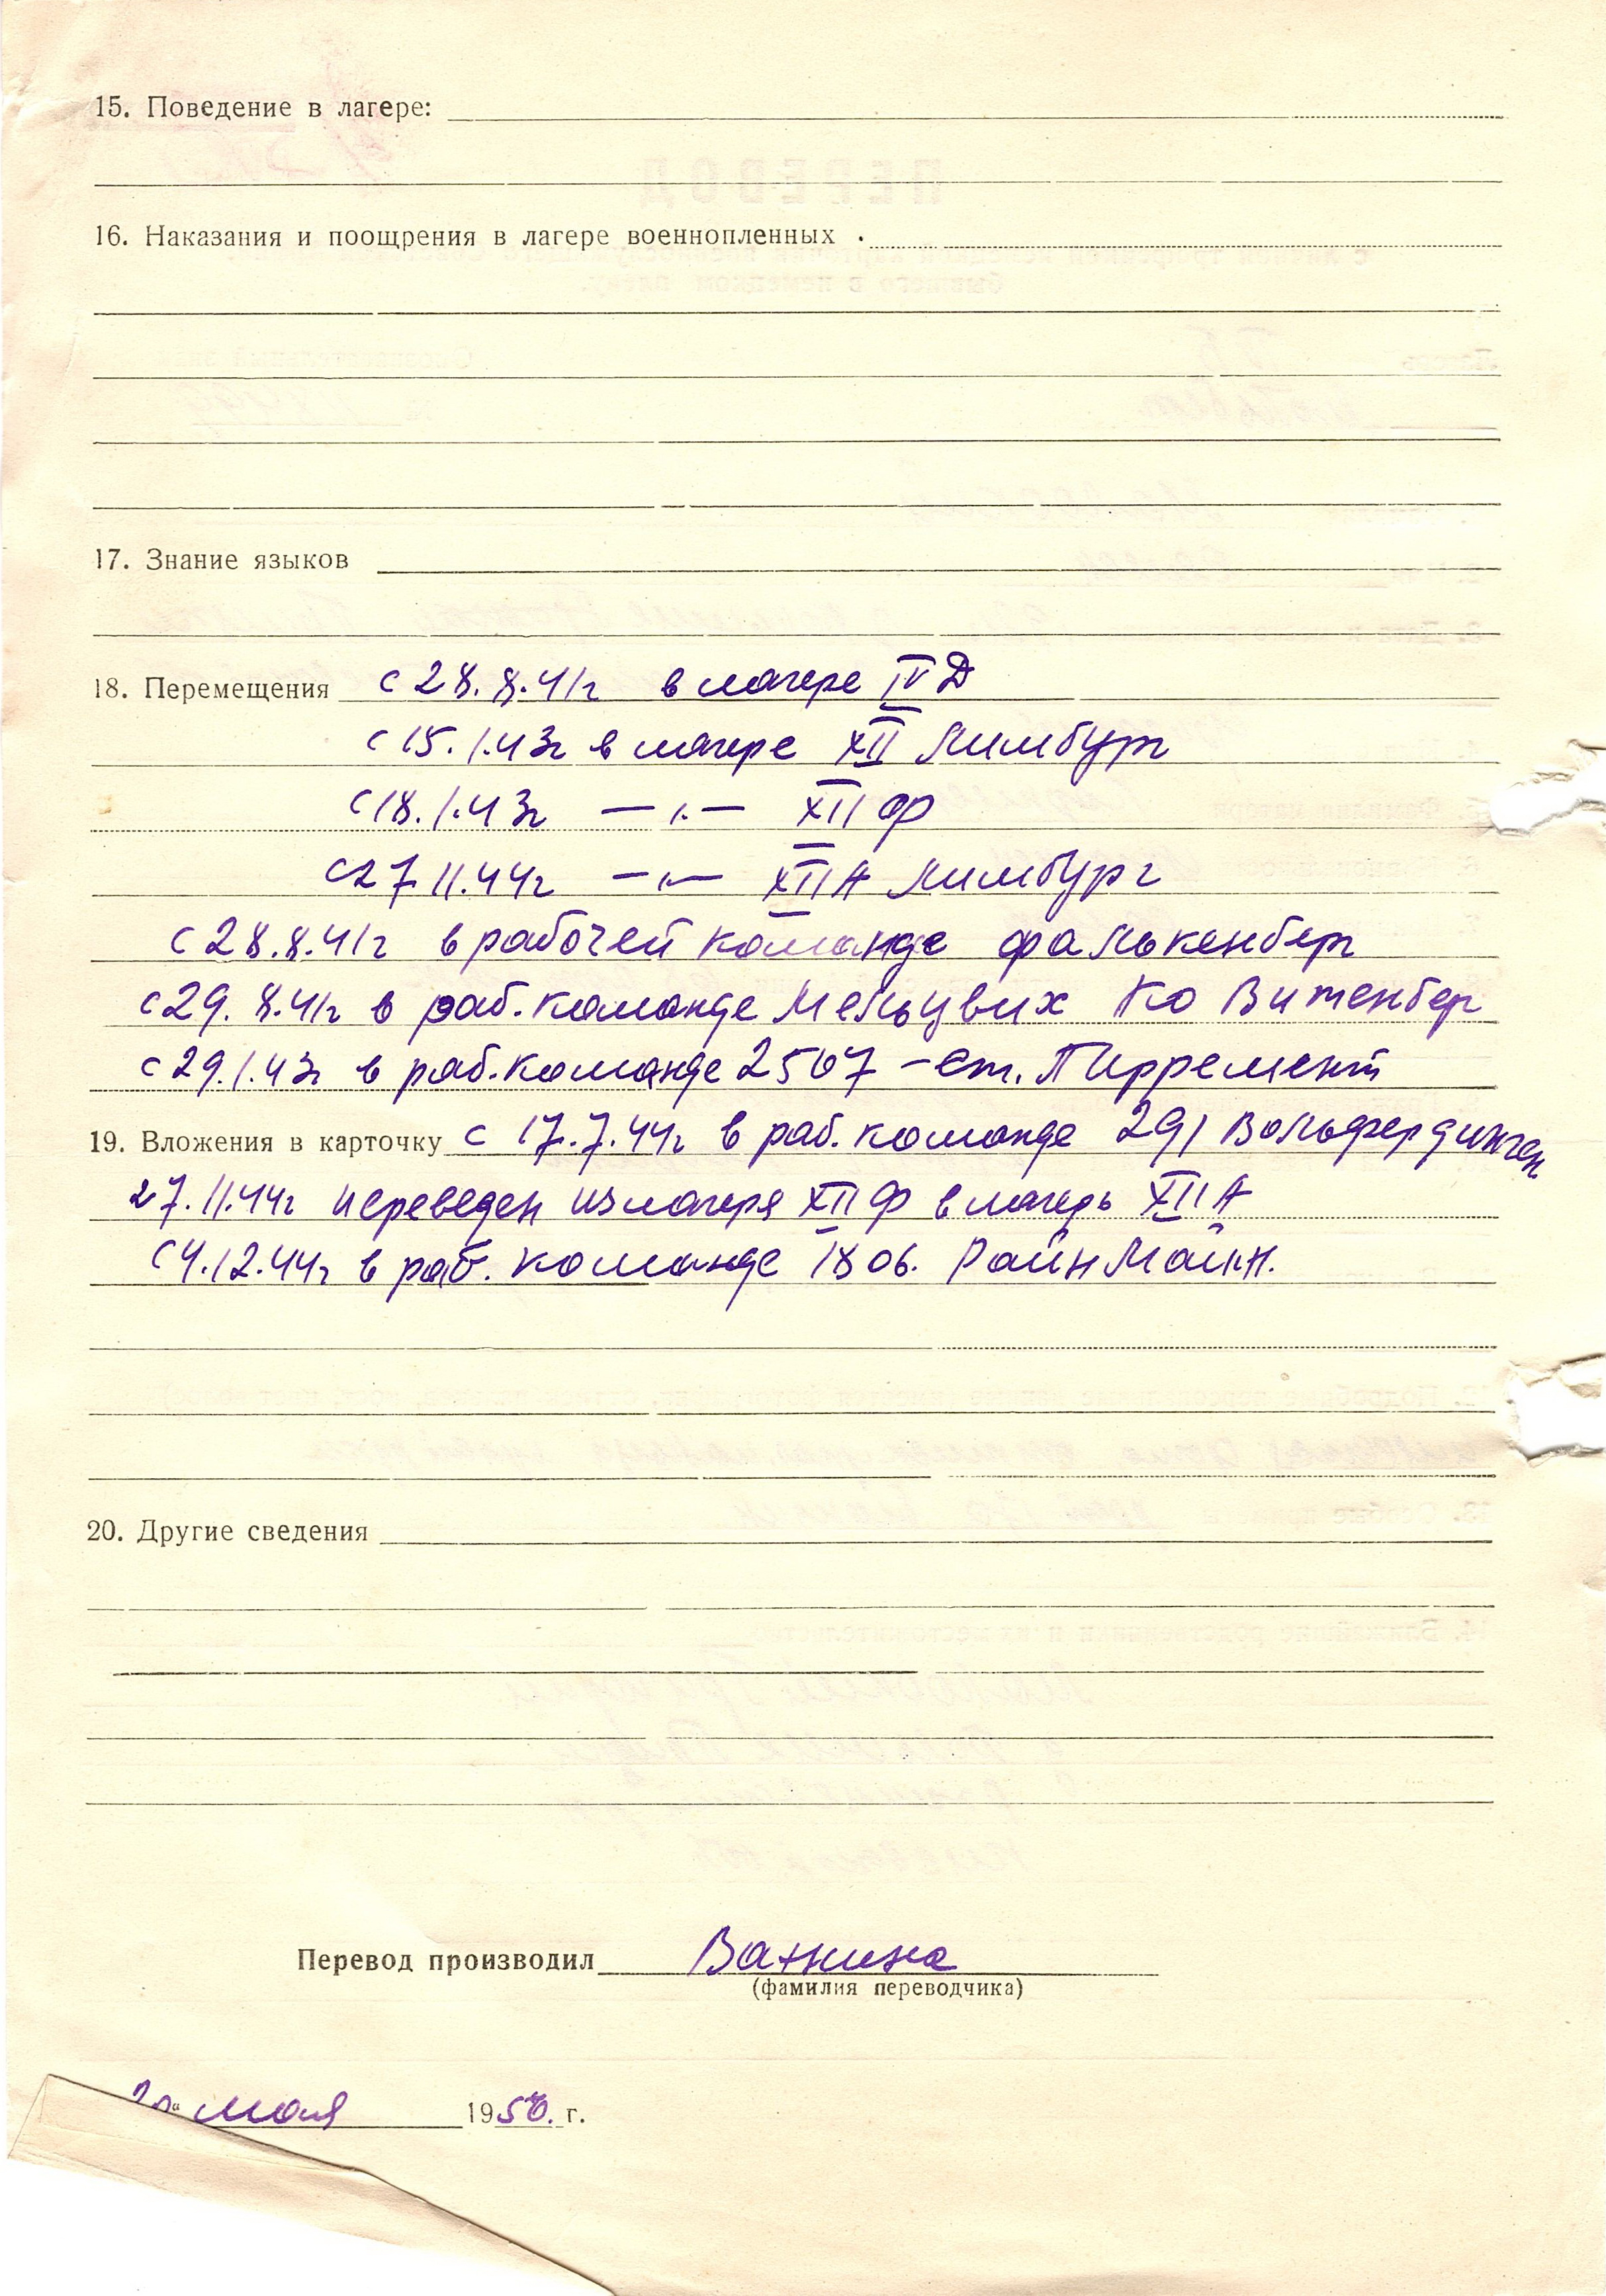 15. Поведение в лагере:
16. Наказания и поощрения в лагере военнопленных
17. Знание языков
18. Перемещения с 28.8.41г в лагере IV Д
с 15.1.43г в лагере XII Лимбург
с 18.1.43г —〃— XII Ф
с 27 11.44г —〃— XII А Лимбург
с 28.8.41г в рабочей команде Фалькенберг
с 29.8.41г в раб. команде Мельцвих Ко Витенбер
с 29.1.43г в раб. команде 2507 – ст. Пирремент
19. Вложения в карточку с 17.7.44г в раб. команде 291 Вольфердинген
27.11.44г переведен из лагеря XII Ф в лагерь XII А
с 4.12.44г в раб. команде 1806. Райн Майн.
20. Другие сведения
Перевод производил Важнина
(фамилия переводчика)
мая 1950. г.